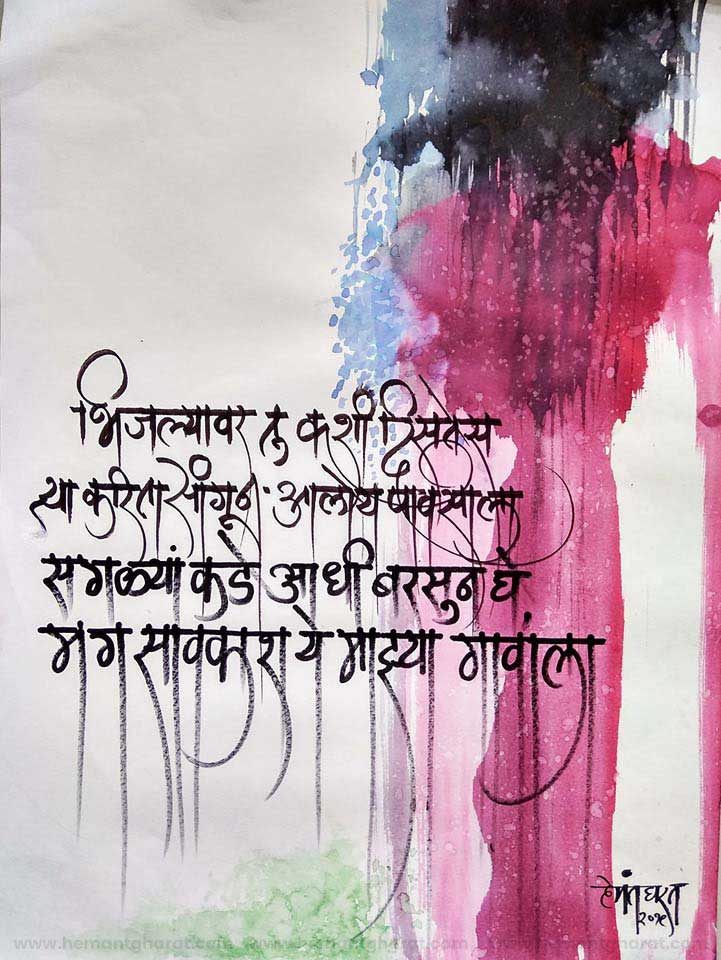 भिजल्यावर तु कशी दिसतेस
त्या करिता सांगून आलोय पावसाला
सगळ्यां कडे आधी बरसुन घे
मग सावकाश ये माझ्या गावाला
हेमंत घरत
२०१९
www.hemantgharat.com www.hemantgharat.com www.hemantgharat.com